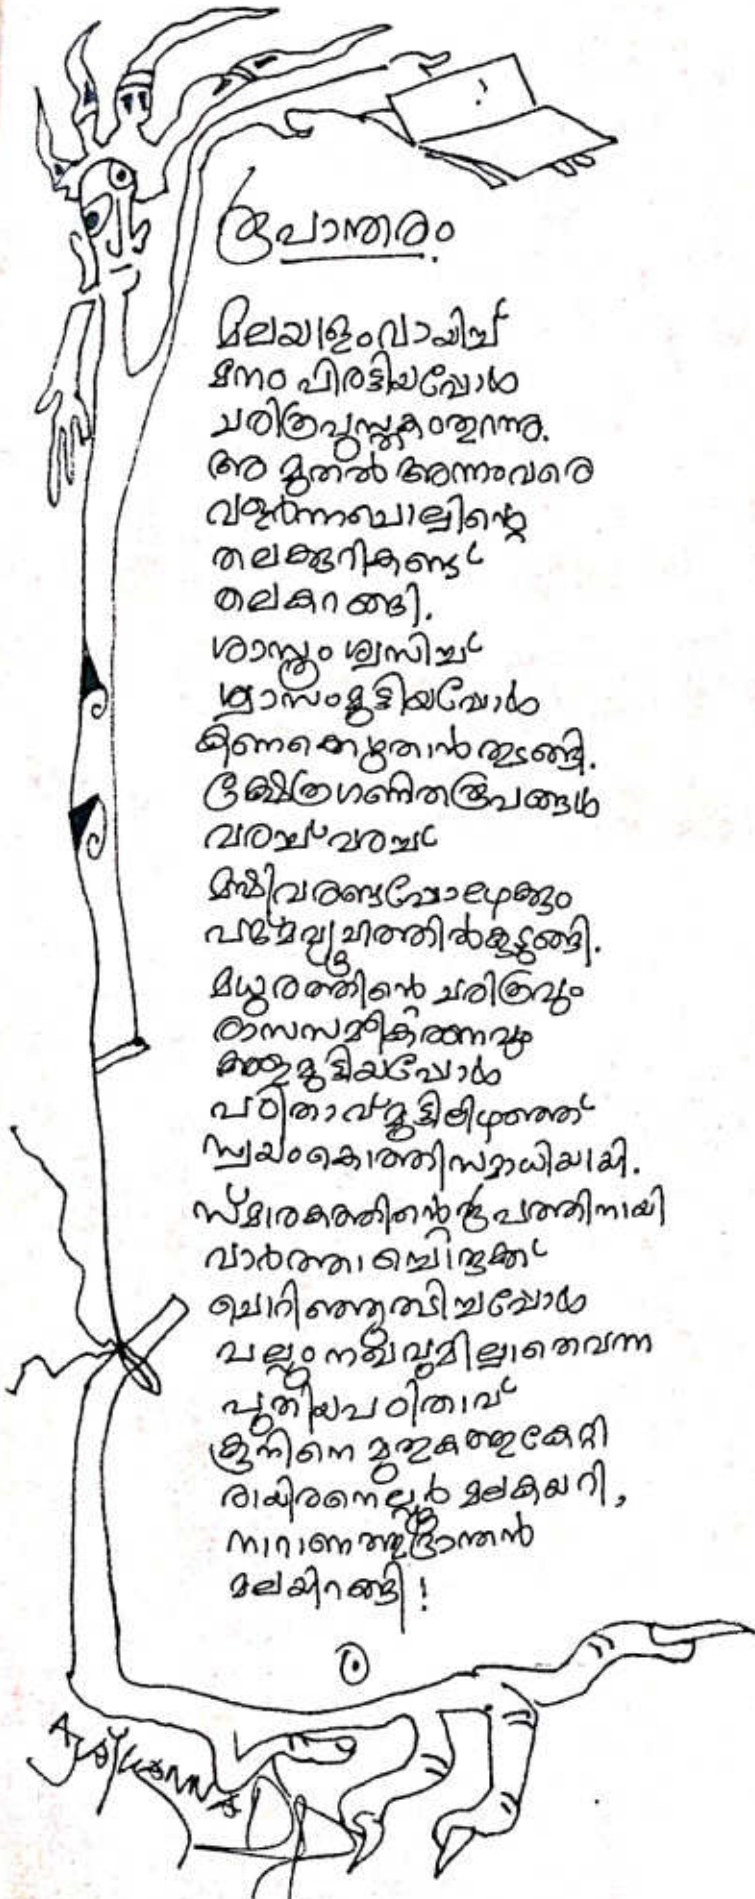 രൂപാന്തരം
മലയാളംവായിച്ച്
മനം പിരട്ടിയപ്പോൾ
ചരിത്രപുസ്തകംതുറന്നു.
അ മുതൽ അന്നംവരെ
വളർന്നചൊല്ലിന്റെ
തലക്കുറികണ്ട്
തലകറങ്ങി.
ശാസ്ത്രം ശ്വസിച്ച്
ശ്വാസംമുട്ടിയപ്പോൾ
കിണക്കെഴുതാൻ തുടങ്ങി.
ക്ഷേത്രഗണിതരൂപങ്ങൾ
വരച്ച് വരച്ച്
മഷിവരണ്ടപ്പോഴേക്കും
പത്മവ്യൂഹത്തിൽകുടുങ്ങി.
മധുരത്തിന്റെ ചരിത്രവും
രാസസമീകരണവും
മുട്ടിയപ്പോൾ
പഠിതാവ് മുട്ടിലിഴഞ്ഞ്
സ്വയംകൊത്തിസമാധിയായി.
സ്മാരകത്തിന്റെരൂപത്തിനായി
വാർത്താ
ചൊറിഞ്ഞുതടിച്ചപ്പോൾ
പല്ലും നഖവുമില്ലാതെവന്ന
പുതിയപഠിതാവ്
കൂനിനെ മുതുകത്തുകേറ്റി
രായിരനെല്ലൂർ മലകയറി,
നാറാണത്തുഭ്രാന്തൻ
മലയിറങ്ങി!